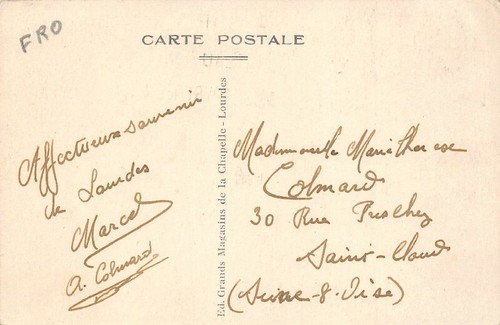 FRO
CARTE POSTALE
Affectueux souvenir
de Lourdes
Marcel
A. Colmard
Ed. Grands Magasins de la Chapelle - Lourdes
Mademoiselle Marie Therese
Colmard
30 Rue
Saint-Cloud
(Seine-&-Oise)